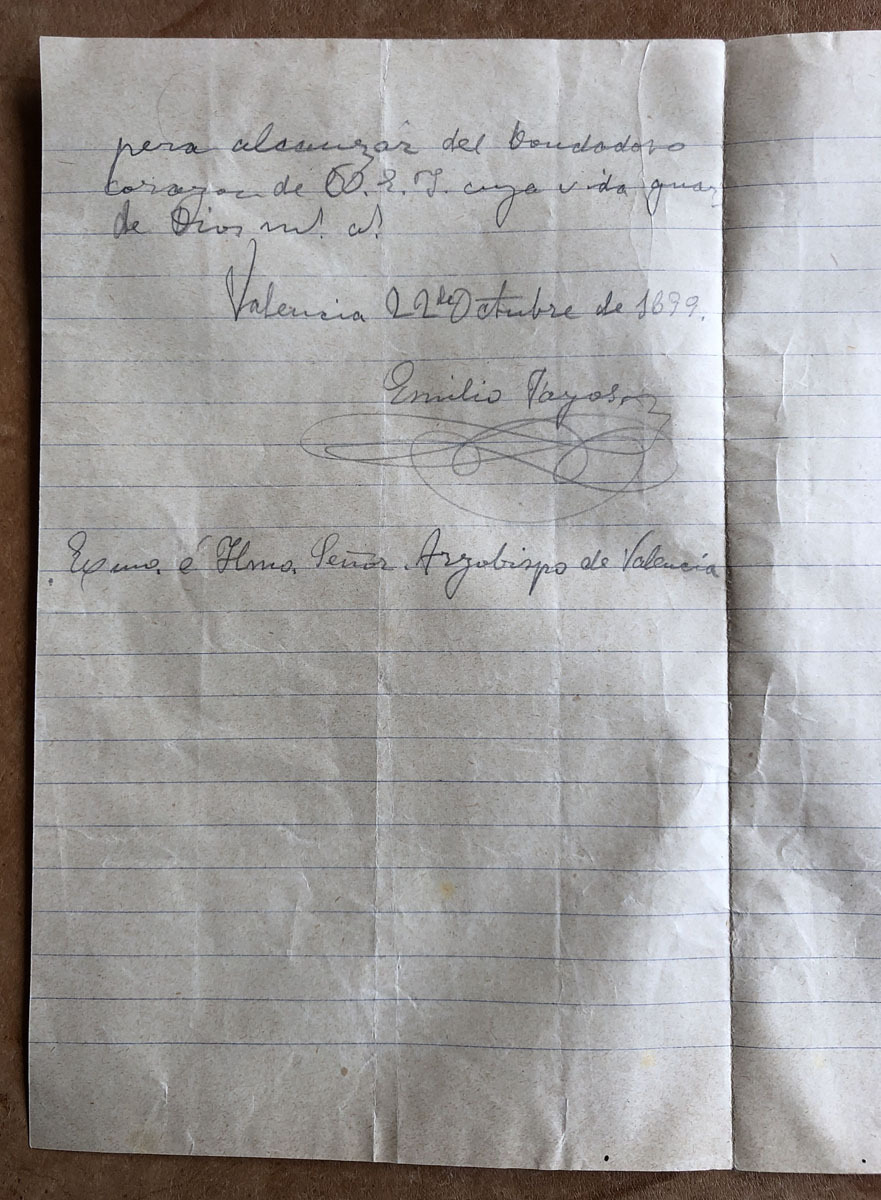 pera alcanzar del bondadoso
corazon de V. E. I. cuya vida guar
de Dios m.s a.s
Valencia 22 de Octubre de 1899.
Emilio
Exmo. é Ilmo. Señor. Arzobispo de Valencia